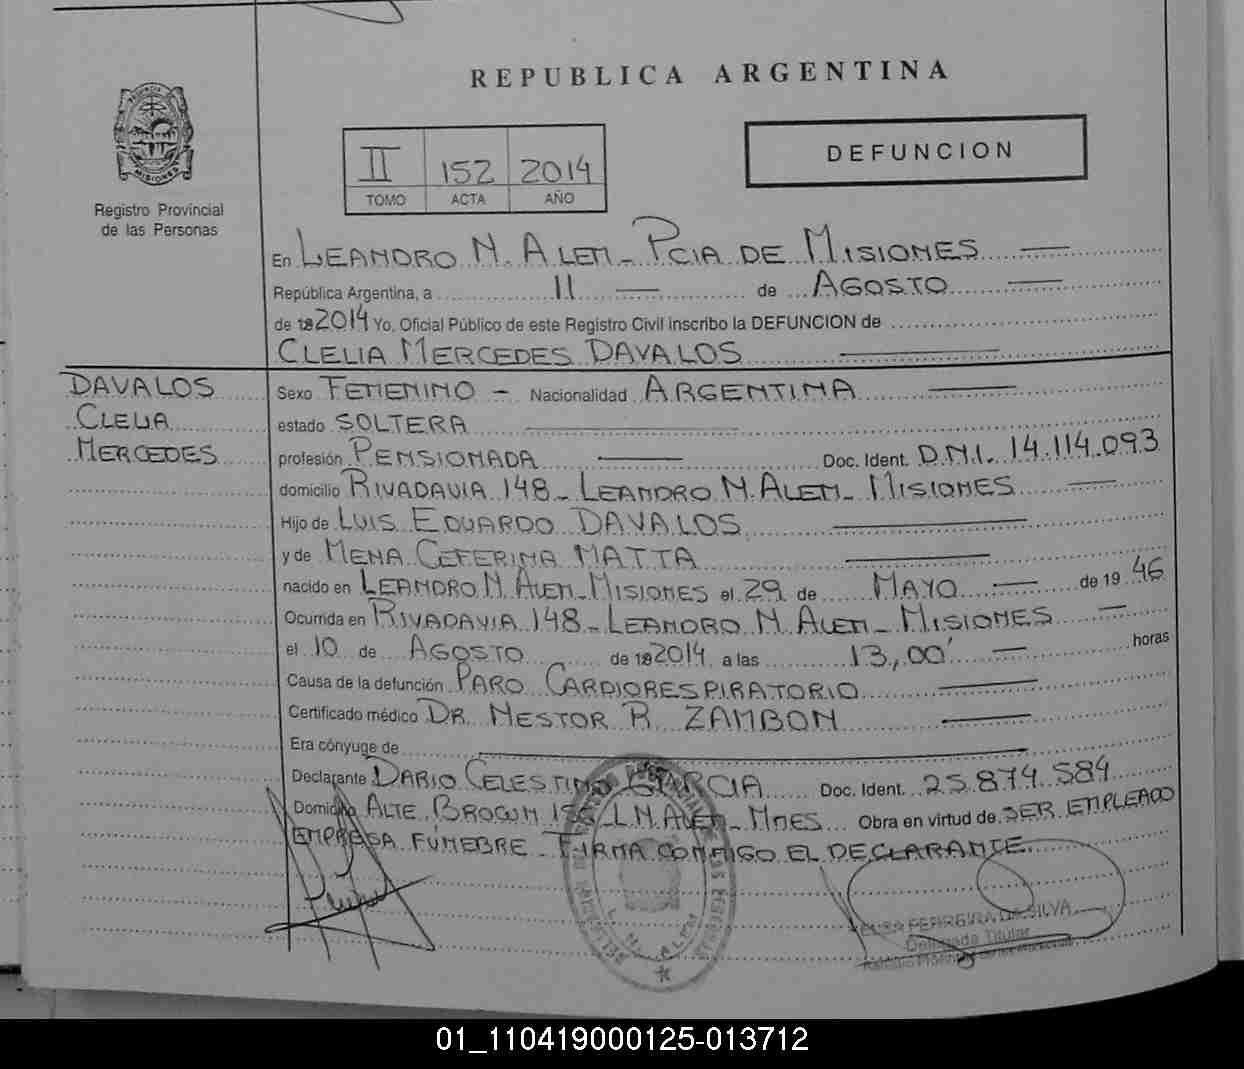 REPUBLICA ARGENTINA
PROVINCIA DE
MISIONES
Registro Provincial
de las Personas
II 152 2014
TOMO ACTA AÑO
DEFUNCION
En LEANDRO N. ALEM - PCIA DE MISIONES
República Argentina, a 11 de AGOSTO
de 2014 Yo, Oficial Público de este Registro Civil inscribo la DEFUNCION de
CLELIA MERCEDES DAVALOS
DAVALOS
CLELIA
MERCEDES
Sexo FEMENINO - Nacionalidad ARGENTINA
estado SOLTERA
profesión PENSIONADA Doc. Ident. D.N.I. 14.114.093
domicilio RIVADAVIA 148 - LEANDRO N. ALEM - MISIONES
Hijo de LUIS EDUARDO DAVALOS
y de MENA CEFERINA MATTA
nacido en LEANDRO N. ALEM - MISIONES el 29 de MAYO de 19 46
Ocurrida en RIVADAVIA 148 - LEANDRO N. ALEM - MISIONES
el 10 de AGOSTO de 2014 a las 13,00' horas
Causa de la defunción PARO CARDIORESPIRATORIO
Certificado médico DR. NESTOR R. ZAMBON
Era cónyuge de
Declarante DARIO CELESTINO GARCIA Doc. Ident. 25.874.584
Domicilio ALTE BROWN - L.N. ALEM - MNES Obra en virtud de SER EMPLEADO
EMPRESA FÚNEBRE - FIRMA CONMIGO EL DECLARANTE
L. N. ALEM
FERREIRA DA SILVA
Delegada Titular
01_110419000125-013712